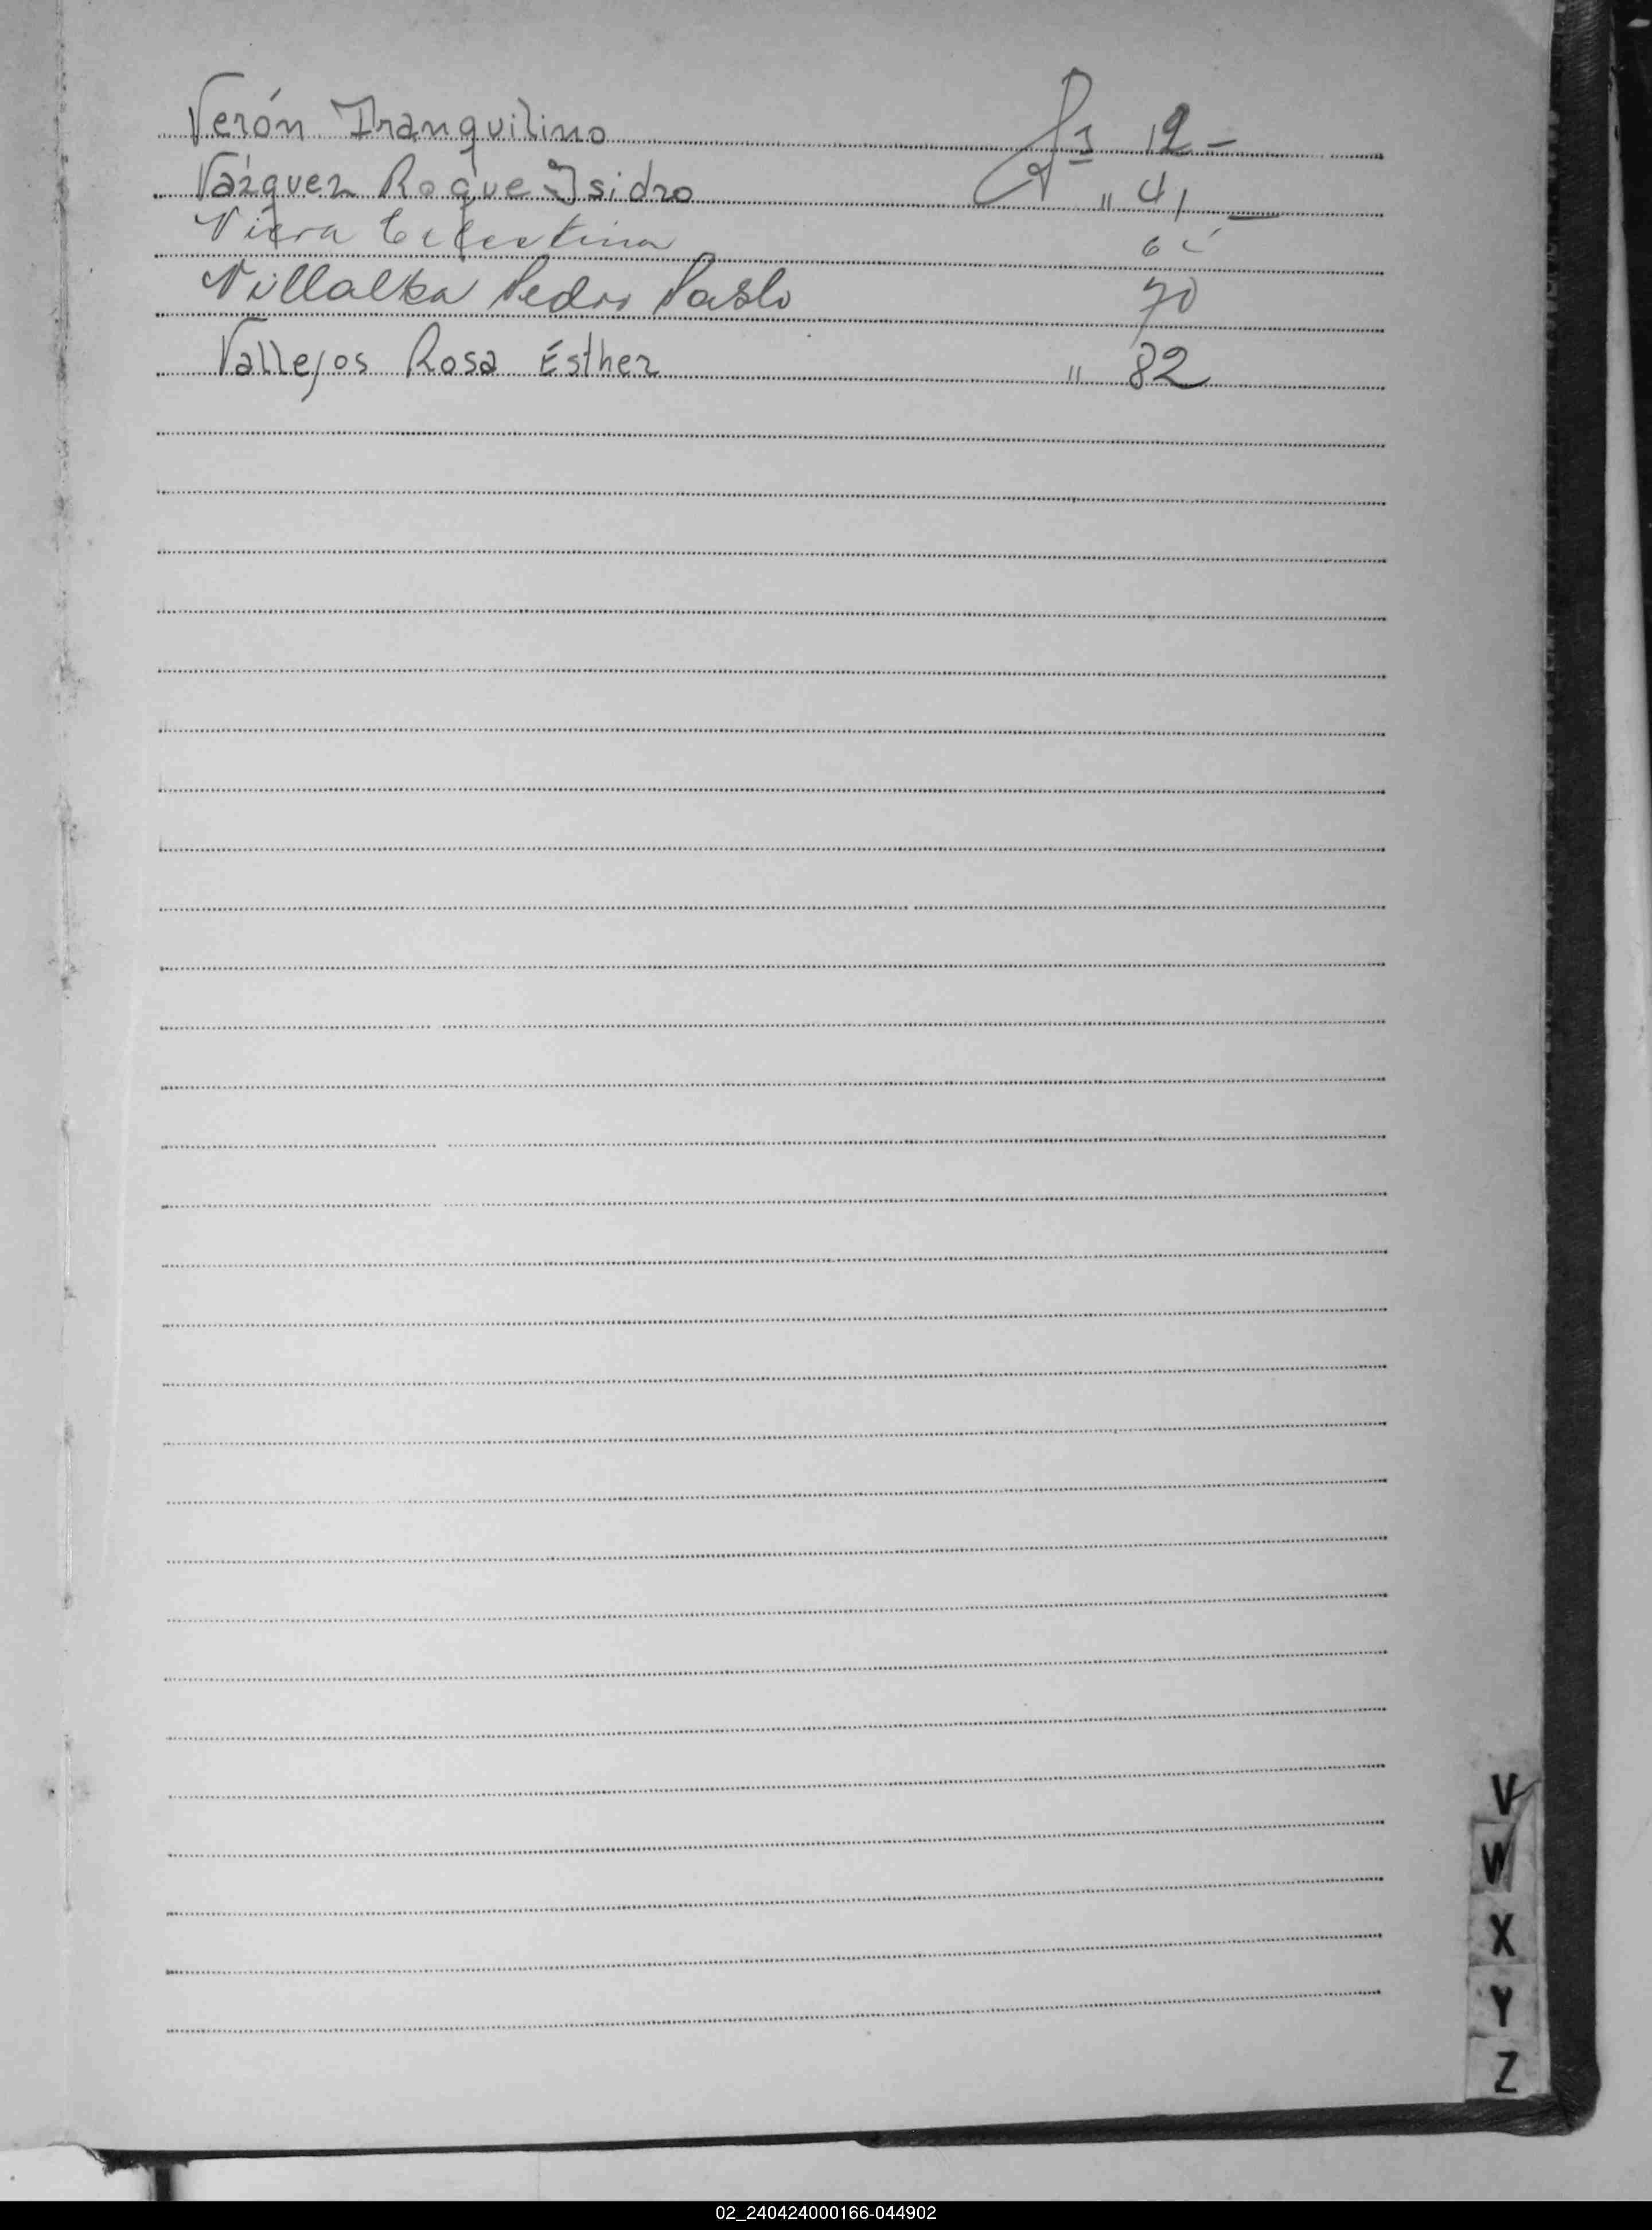 Verón Tranquilino Fs 12 -
Vázquez Roque Isidro " 41 -
Viera Celestina 6
Villalba Pedro Pablo 70
Vallejos Rosa Esther " 82
V
W
X
Y
Z
02_240424000166-044902